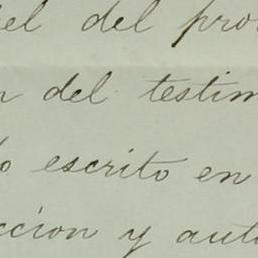 el del pro
n del testim
o escrito en
ccion y auto